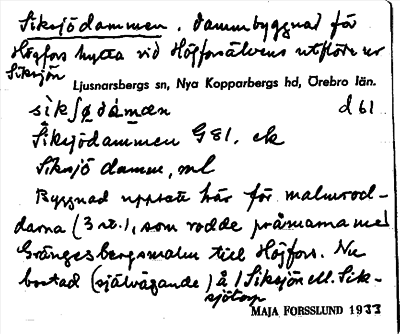 Siksjödammen. Dammbyggnad för
Högfors hytta vid Högforsälvens utflöde ur
Siksjön
Ljusnarsbergs sn, Nya Kopparbergs hd, Örebro län.
d 61
Siksjödammen G 81. ek
Siksjö damm, ml
Byggnad uppsatt här för malmrod-
darna (3 st.), som rodde pråmarna med
Grängesbergsmalm till Högfors. Nu
bostad (självägande) å l Siksjön ell. Sik-
sjötorp
MAJA FORSSLUND 1933